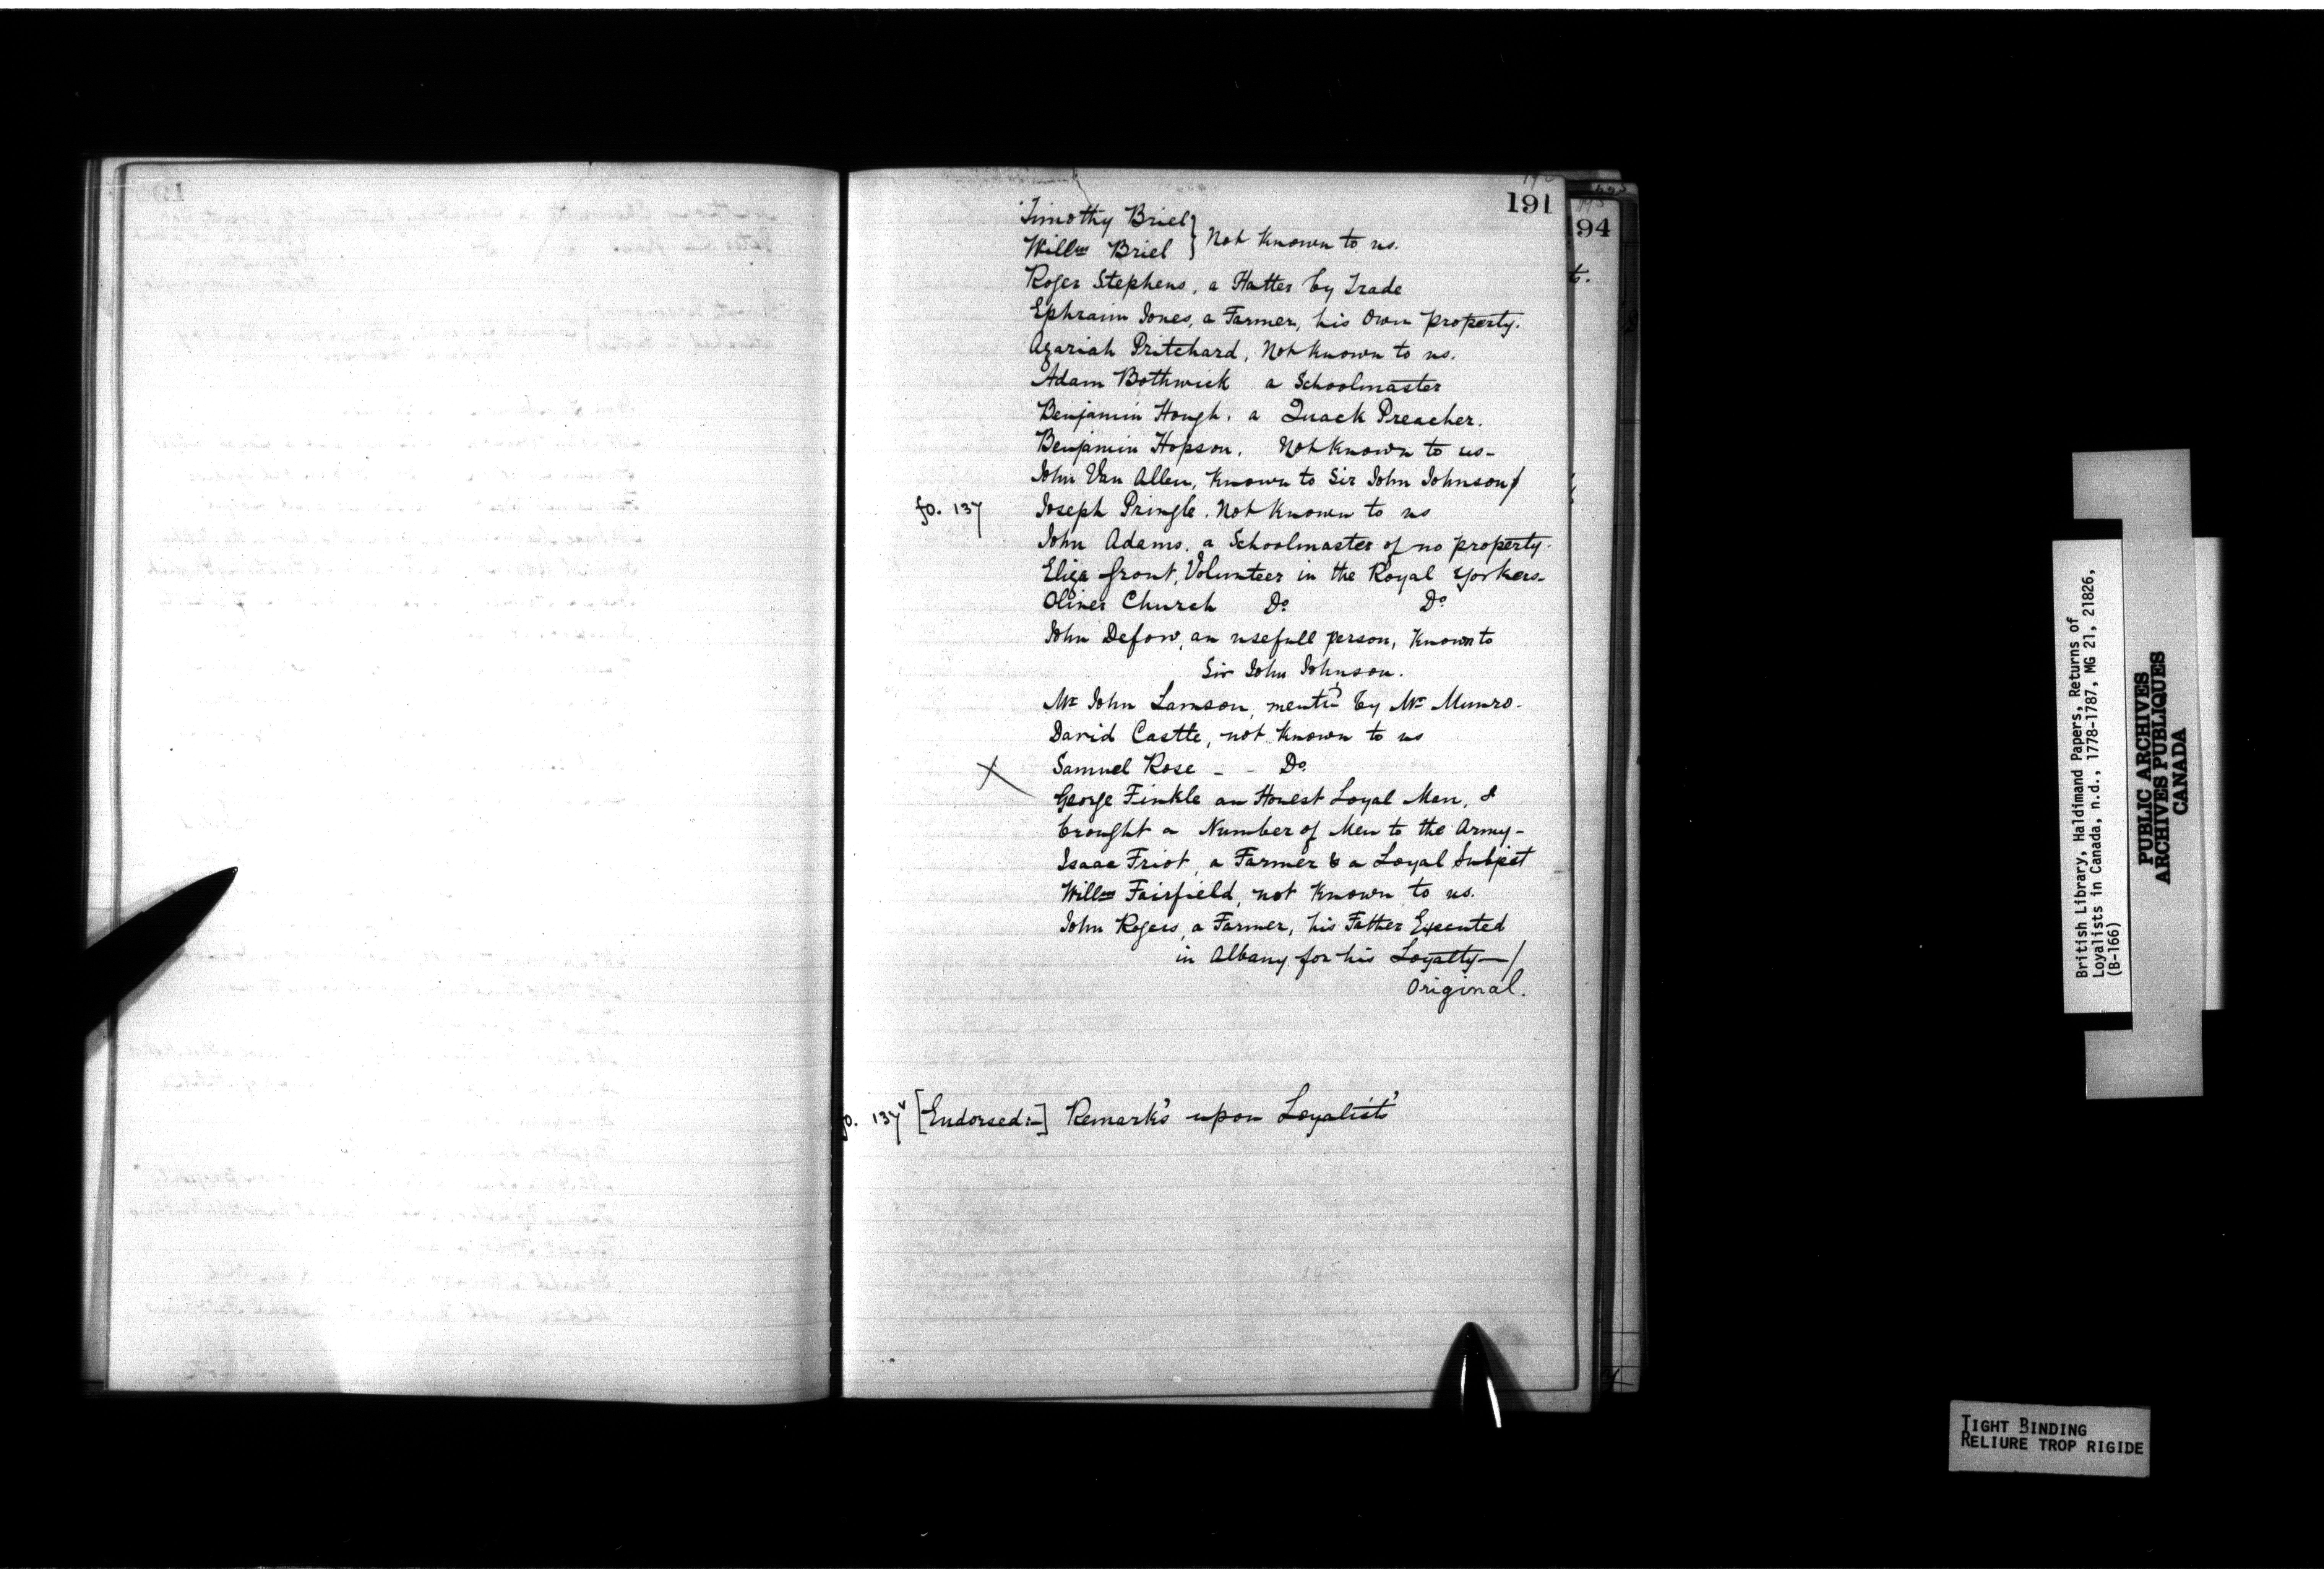 191
Timothy Briel
Willm Briel } Not Known to us.
Roger Stephens, a Hatter by Trade
Ephraim Jones, a Farmer, his own property.
Azariah Pritchard, Not Known to us.
Adam Bothwick a Schoolmaster
Benjamin Hough, a Quack Preacher.
Benjamin Hopson, Not Known to us-
John Van Allen, Known to Sir John Johnson/
fo. 137 Joseph Pringle. Not Known to us
John Adams, a Schoolmaster of no property.
Eliza Grout, Volunteer in the Royal Yorkers-
Oliver Church Do Do
John Defow, an usefull person, Known to
Sir John Johnson.
Mr John Lamson, mentd by Mr Munro-
David Castle, not Known to us
X Samuel Rose - - Do
George Finkle an Honest Loyal Man, &
brought a Number of Men to the Army-
Isaac Friot, a Farmer & a Loyal Subject
Willm Fairfield, not Known to us.
John Rogers, a Farmer, his Father Executed
in Albany for his Loyalty—/
Original.
fo. 137v [Endorsed:-] Remark's upon Loyalists'
94
to.
British Library, Haldimand Papers, Returns of
Loyalists in Canada, n.d., 1778-1787, MG 21, 21826,
(B-166)
PUBLIC ARCHIVES
ARCHIVES PUBLIQUES
CANADA
TIGHT BINDING
RELIURE TROP RIGIDE